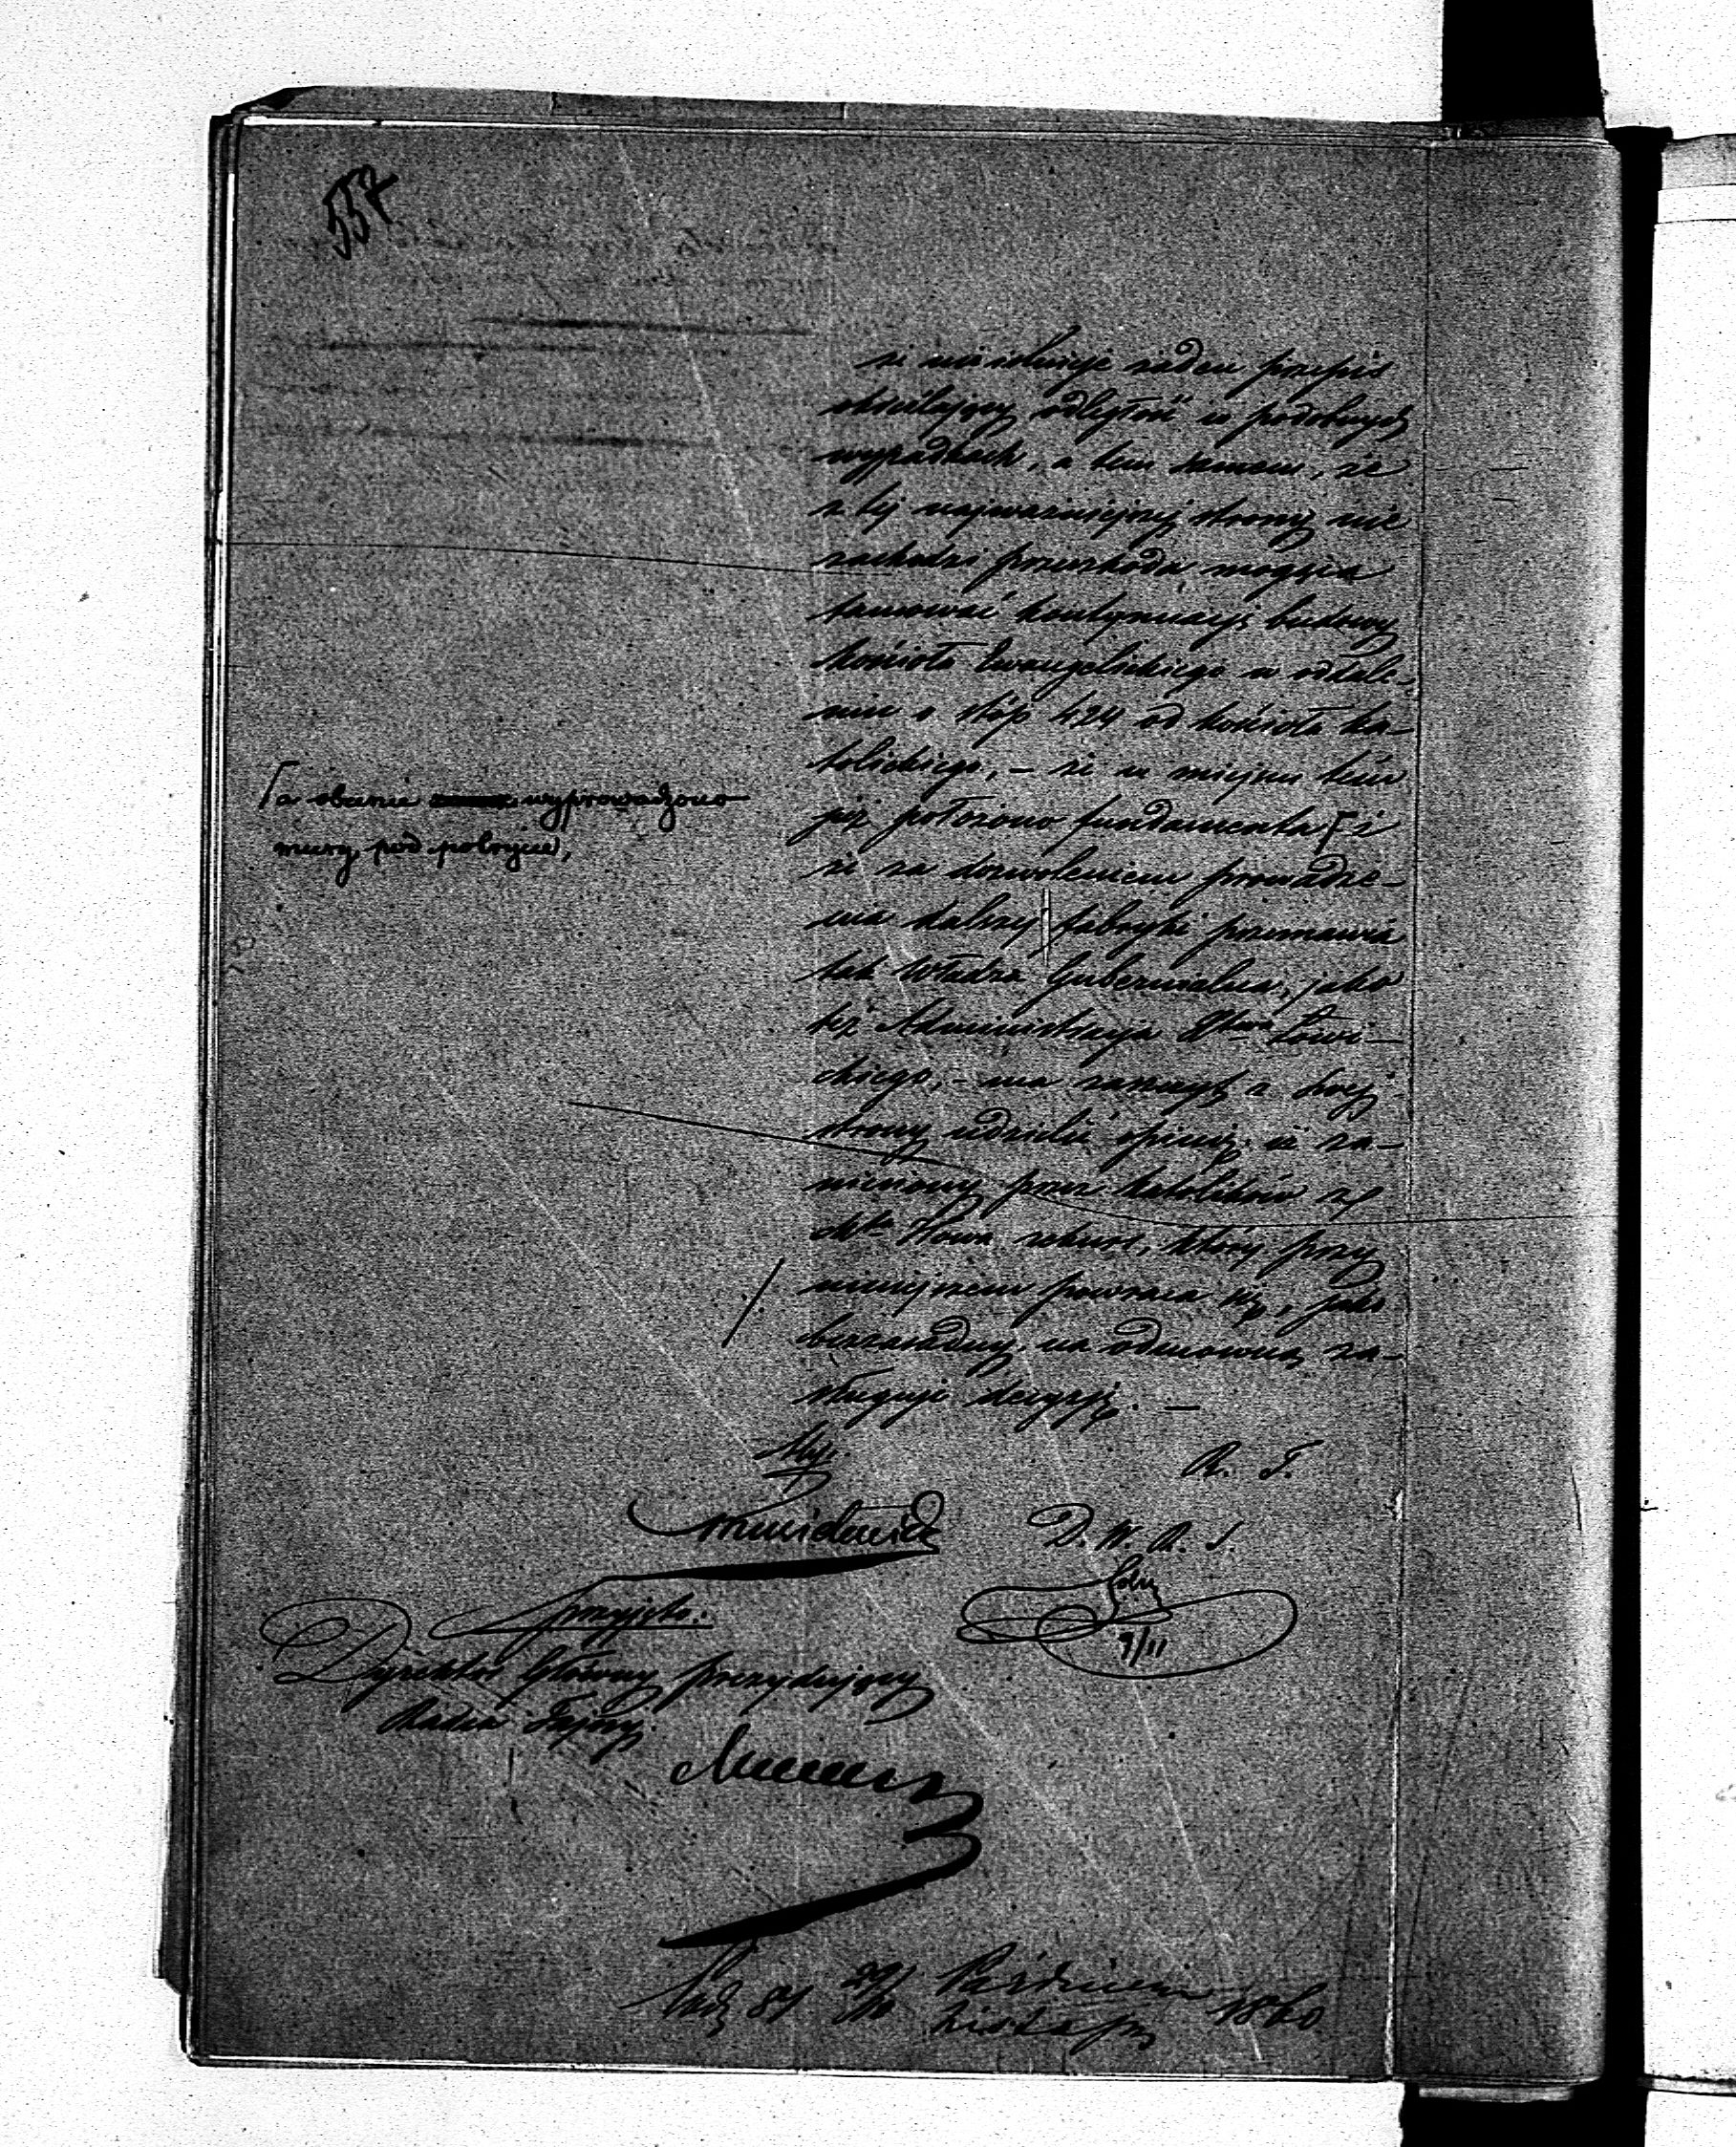 557
że nie istnieje żaden przepis
określający odległość w podobnych
wypadkach, a tem samem, że
z tej najważniejszej strony nie
zachodzi przeszkoda mogąca
tamować kontynuacyę budowy
kościoła Ewangelickiego w oddale-
niu o stóp 424 od kościoła ka-
tolickiego, – że w miejscu tem
już położono fundamenta [ i
że za dozwoleniem prowadze-
nia dalszej fabryki przemawia
tak Władza Gubernialna, jako
też Administracya Xtwa Łowi-
ckiego, – ma zaszczyt z swej
strony udzielić opinię, iż za-
niesiony przez katolików z
Mta rekurs, który przy
niniejszem powraca się, jako
bezzasadny, na odmowną za-
sługuje decyzję. –
[ a obecnie wyprowadzono
mury pod pokrycie,
R. T.
D. W. R. S.
9/11
przyjęto.
Dyrektor Główny prezydujący
Radca Tajny
81 29/10 Października 1860
Listopa